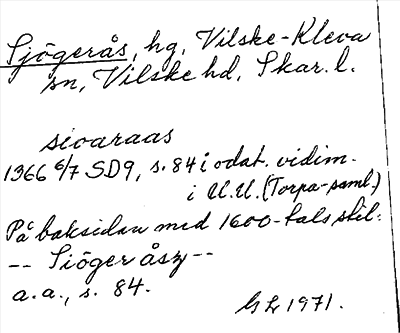 Sjögerås, hg, Vilske-Kleva
sn, Vilske hd, Skar. l.
sioaraas
1366 6/7 SD9, s. 84 i odat. vidim.
i U.U. (Torpa-saml.)
På baksidan med 1600-talsstil:
-- Siöger åsz --
a.a., s. 84.
1971.